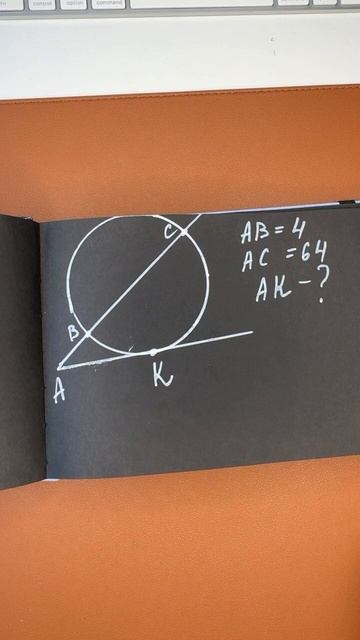 control
option
command
C
AB = 4
AC = 64
AK - ?
B
A
K